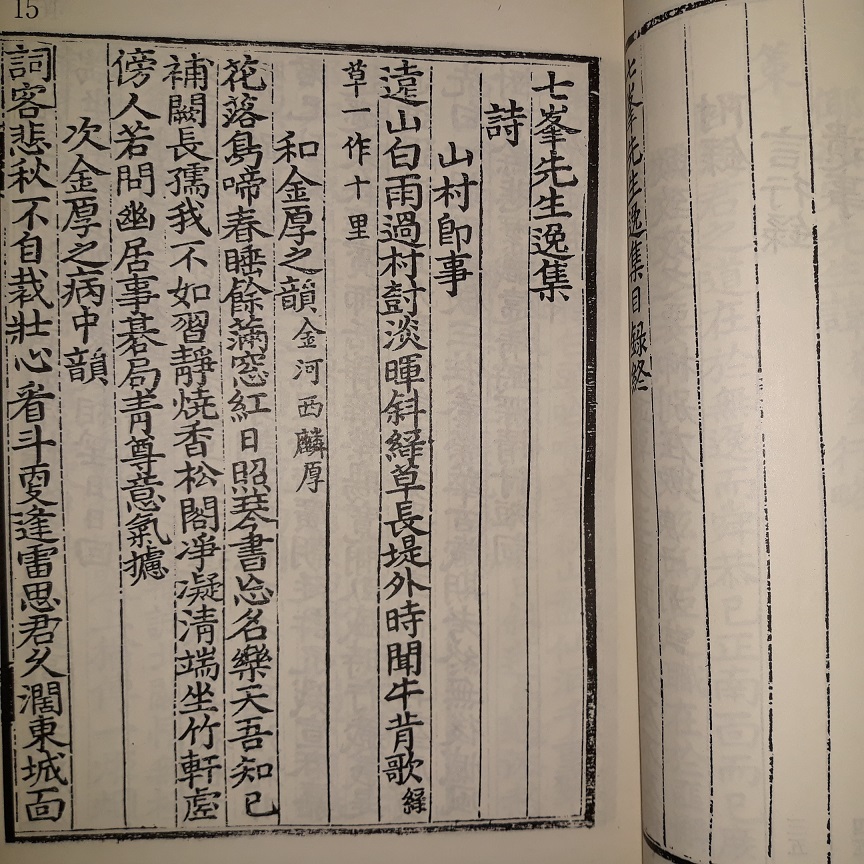 七峯先生逸集目錄終
15
七峯先生逸集
詩
山村卽事
遠山白雨過村樹淡暉斜綠草長堤外時聞牛背歌綠
草一作十里
和金厚之韻金河西麟厚
花落鳥啼春睡餘滿窓紅日照琴書忘名樂天吾知已
補闕長孺我不如習靜燒香松閣淨凝清端坐竹軒虛
傍人若問幽居事碁局靑尊意氣攄
次金厚之病中韻
詞客悲秋不自裁壯心看斗逢雷思君久濶東城面